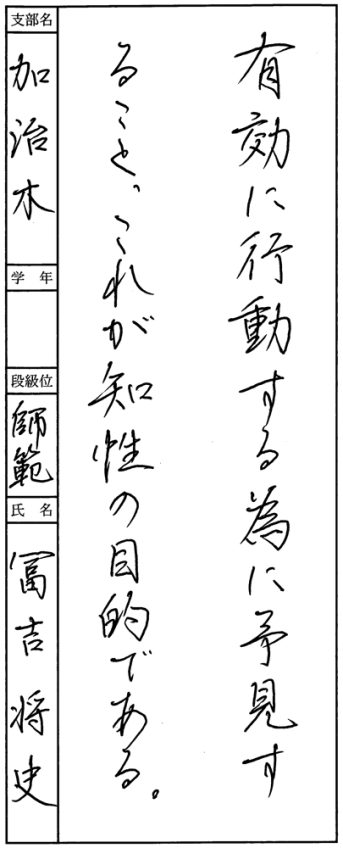 有効に行動する為に予見す
ること、これが知性の目的である。
支部名
加治木
学年
段級位
師範
氏名
冨吉将史